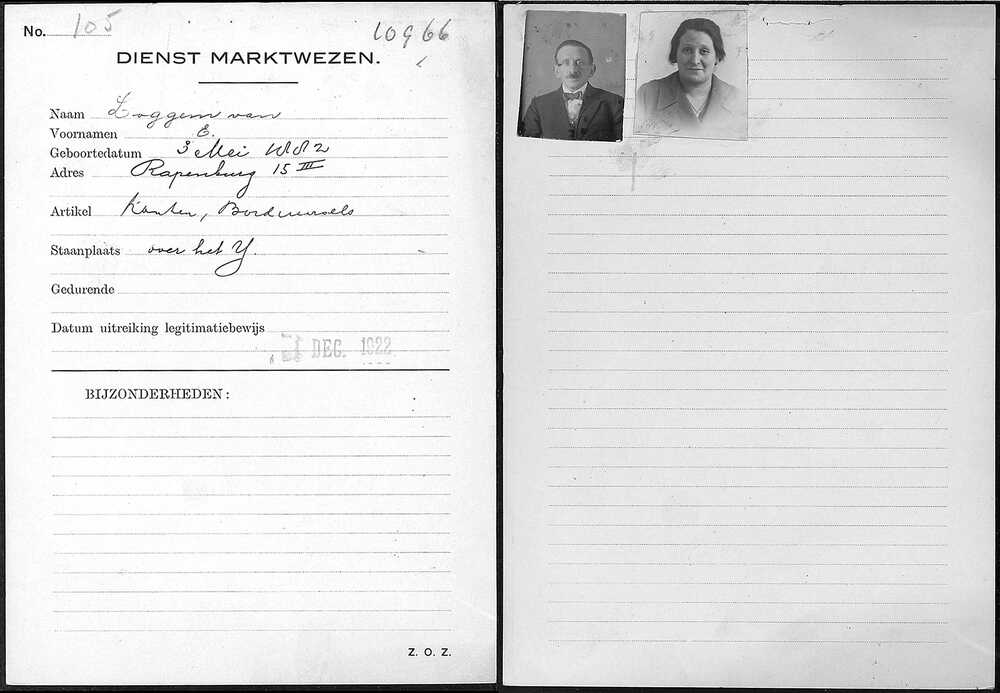 No. 105
10966
DIENST MARKTWEZEN.
Naam Zoggem van
Voornamen E.
Geboortedatum 3 Mei 1882
Adres Rapenburg 15 III
Artikel Kanten, Borduursels
Staanplaats over het Y.
Gedurende
Datum uitreiking legitimatiebewijs
DEC. 1922
BIJZONDERHEDEN:
Z. O. Z.